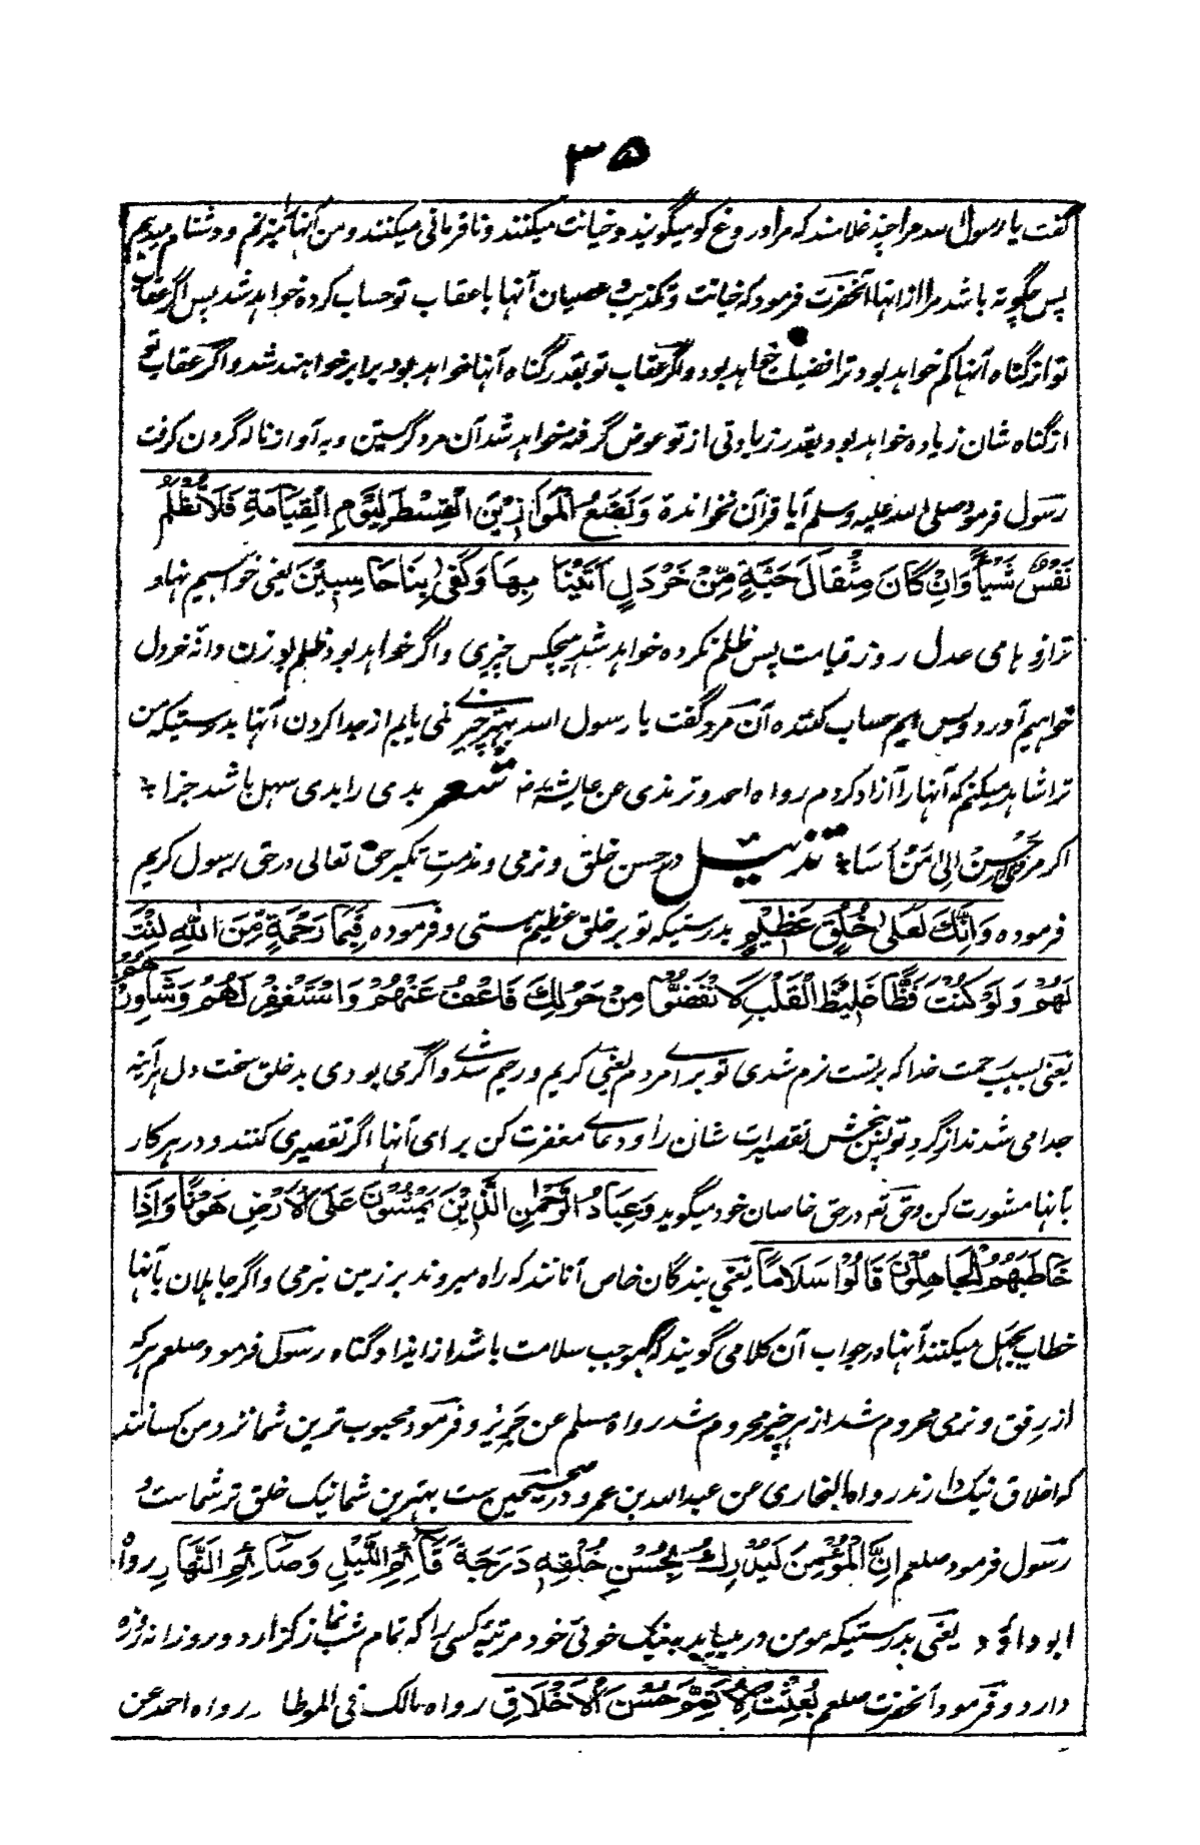 ۳۵
گفت یا رسول الله مرا چند غلامند که مرا دروغ گو میگویند و خیانت میکنند و نافرمانی میکنند و من آنها را میزنم و دشنام میدهم
پس چگونه باشد مرا از انها آنحضرت فرمود که خیانت و تکذیب و عصیان آنها با عقاب تو حساب کرده خواهد شد پس اگر عقاب
تو از گناه آنها کم خواهد بود ترا فضیلت خواهد بود و اگر عقاب تو بقدر گناه آنها خواهد بود برابر خواهند شد و اگر عقاب تو
از گناه شان زیاده خواهد بود بقدر زیادتی از تو عوض گرفته خواهد شد آن مرد گریستن و به آواز ناله کردن گرفت
رسول فرمود صلی الله علیه وسلم آیا قرآن نخوانده وَنَضَعُ الْمَوَازِيْنَ الْقِسْطَ لِيَوْمِ الْقِيَامَةِ فَلَا تُظْلَمُ
نَفْسٌ شَيْئًا وَاِنْ كَانَ مِثْقَالَ حَبَّةٍ مِّنْ خَرْدَلٍ اَتَيْنَا بِهَا وَكَفٰى بِنَا حَاسِبِيْنَ یعنی خواهیم نهاد
ترازو های عدل روز قیامت پس ظلم نکرده خواهد شد هیچکس چیزی و اگر خواهد بود ظلم بوزن دانه خردل
خواهیم آورد و بس ایم حساب کننده آن مرد گفت یا رسول الله بهتر چیزے نمی یابم از جدا کردن آنها بدرستیکه من
ترا شاهد میکنم که آنها را آزاد کردم رواه احمد و ترمذی عن عایشة رض شعر بدی را بدی سهل باشد جزا
اگر مردی اَحْسِنْ اِلٰی مَنْ اَسَا تذئیل در حسن خلق و نرمی و مذمت تکبر حق تعالی در حق رسول کریم
فرموده وَاِنَّكَ لَعَلٰى خُلُقٍ عَظِيْمٍ بدرستیکه تو بر خلق عظیم هستی و فرموده فَبِمَا رَحْمَةٍ مِّنَ اللهِ لِنْتَ
لَهُمْ وَلَوْ كُنْتَ فَظًّا غَلِيْظَ الْقَلْبِ لَا نْفَضُّوْا مِنْ حَوْلِكَ فَاعْفُ عَنْهُمْ وَاسْتَغْفِرْ لَهُمْ وَشَاوِرْهُمْ
یعنی بسبب رحمت خدا که برتست نرم شدی تو براے مردم یعنی کریم و رحیم شدے و اگر می بودی بدخلق سخت دل هرآینه
جدا می شدند از گرد تو پس ببخش تقصیرات شان را و دعاے مغفرت کن برای آنها اگر تقصیری کنند و در هر کار
بآنها مشورت کن و حق تعه در حق خاصان خود میگوید وَعِبَادُ الرَّحْمٰنِ الَّذِيْنَ يَمْشُوْنَ عَلَى الْاَرْضِ هَوْنًا وَاِذَا
خَاطَبَهُمُ الْجَاهِلُوْنَ قَالُوْا سَلَامًا یعنی بندگان خاص آنانند که راه میروند بر زمین بنرمی و اگر جاهلان بآنها
خطاب بجهل میکنند آنها در جواب آن کلامی گویند که موجب سلامت باشد از ایذا و گناه رسول فرمود صلعم هر که
از رفق و نرمی محروم شد از هر خیر محروم شد رواه مسلم عن جریر و فرمود محبوب ترین شما نزد من کسانند
که اخلاق نیک دارند رواه البخاری عن عبدالله بن عمرو در صحیحین ست بهترین شما نیک خلق تر شماست و
رسول فرمود صلعم اِنَّ الْمُؤْمِنَ لَيُدْرِكُ بِحُسْنِ خُلُقِهٖ دَرَجَةَ قَآئِمِ اللَّيْلِ وَصَآئِمِ النَّهَارِ رواه
ابو داؤد یعنی بدرستیکه مومن در می یابد به نیک خوئی خود مرتبه کسی را که تمام شب نماز گزارد و روزانه روزه
دارد و فرمود آنحضرت صلعم بُعِثْتُ لِاُتَمِّمَ حُسْنَ الْاَخْلَاقِ رواه مالک فی الموطا و رواه احمد عن